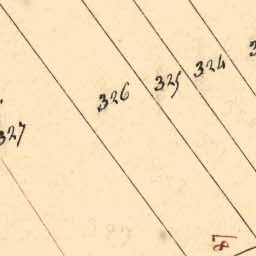 324
325
326
327
8